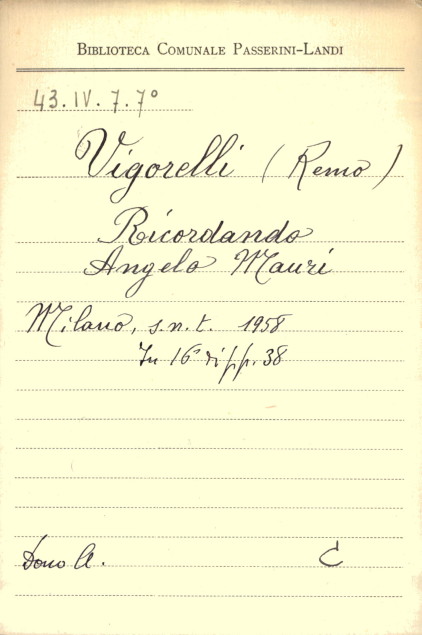 BIBLIOTECA COMUNALE PASSERINI-LANDI
43.IV.7.7°
Vigorelli (Remo)
Ricordando
Angelo Mauri
Milano, s.n.t. 1958
In 16° di pp. 38
Dono A. C